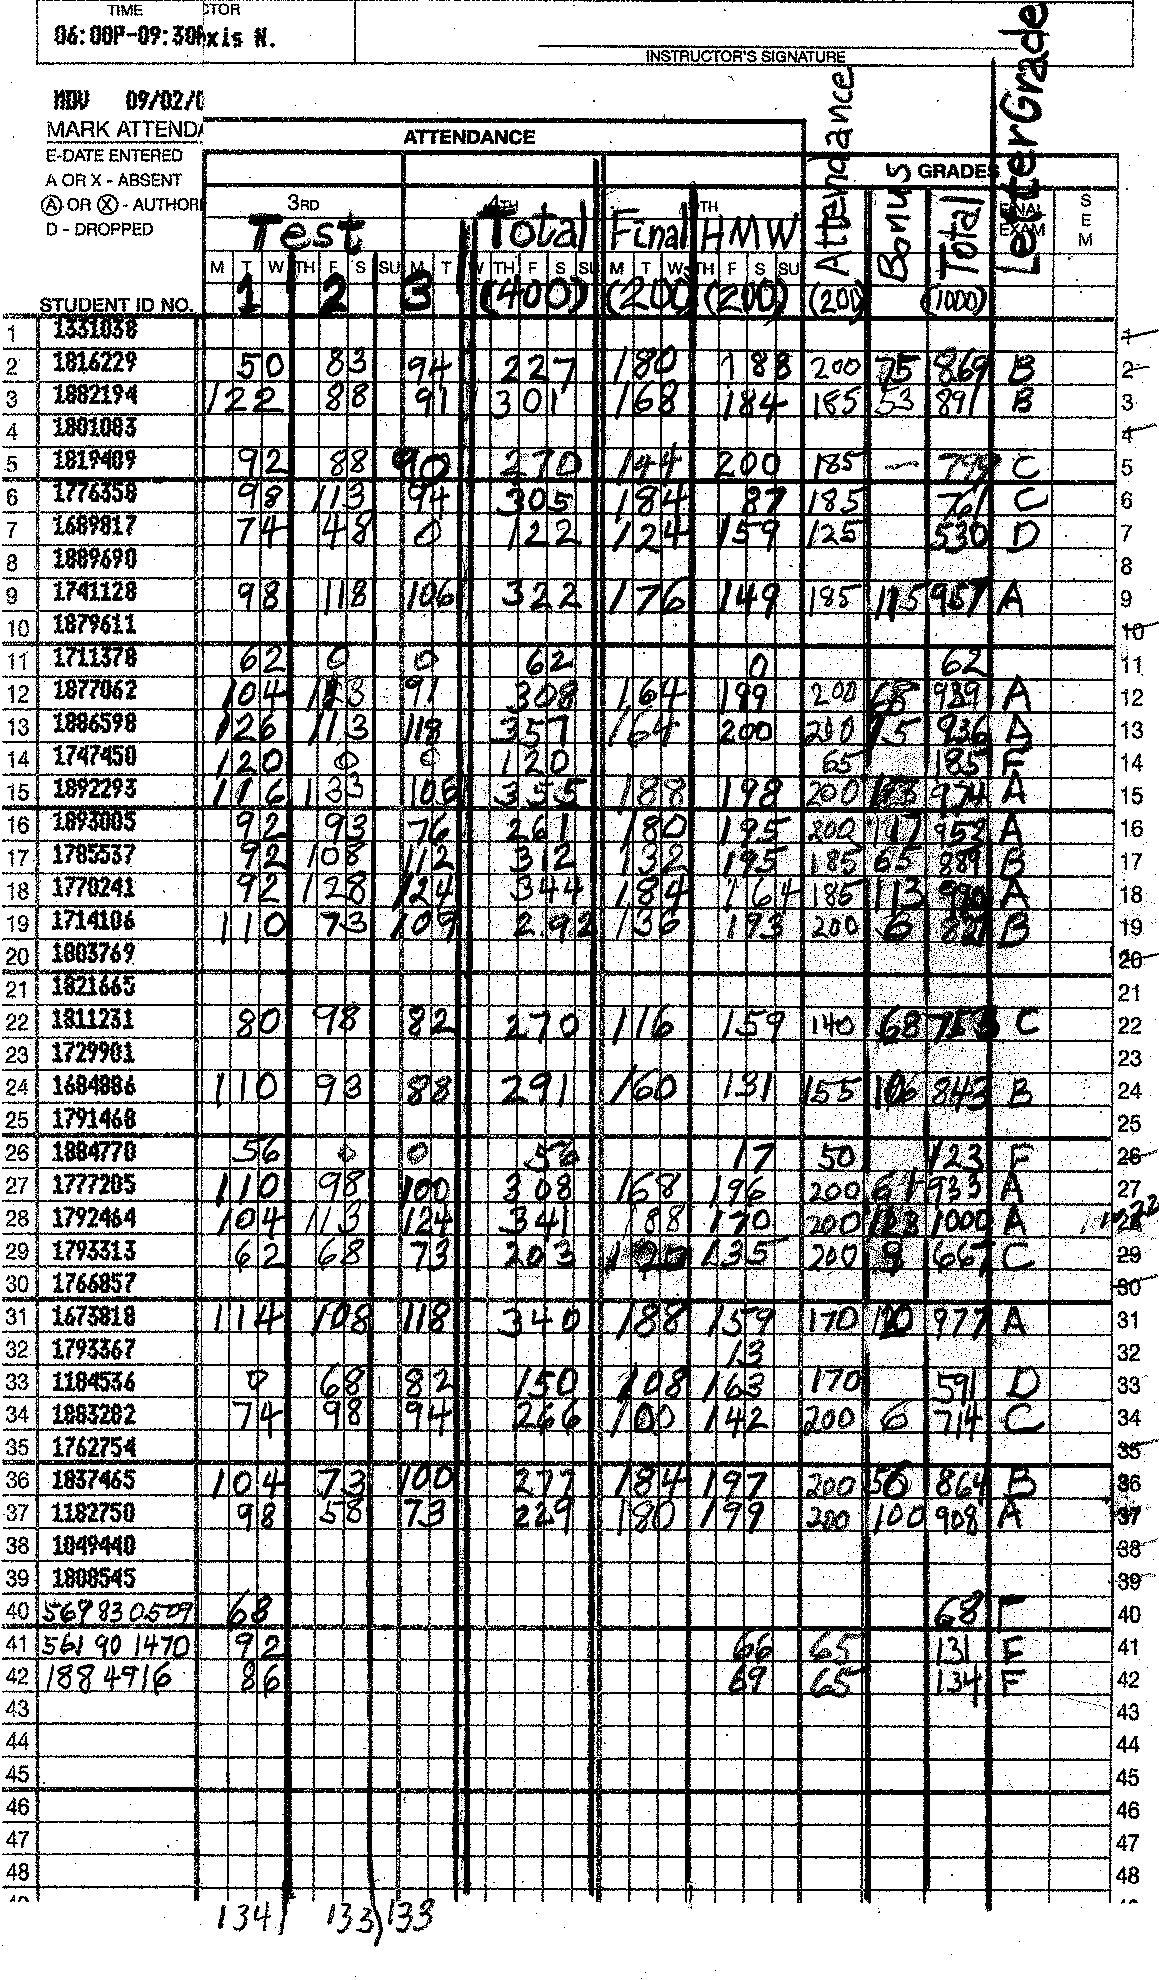 TIME CTOR
06:00P-09:30 xis N.
INSTRUCTOR'S SIGNATURE
MDV 09/02/0
MARK ATTENDA
E-DATE ENTERED
A OR X - ABSENT
Ⓐ OR Ⓧ - AUTHOR
D - DROPPED
ATTENDANCE
GRADES
3RD 4TH TH FINAL EXAM SEM
Test Total Final HMW Attendance Bonus Total Letter Grade
M T W TH F S SU M T W TH F S SU M T W TH F S SU
STUDENT ID NO. 1 2 3 (400) (200) (200) (200) (1000)
1 1331038 1
2 1816229 50 83 94 227 180 188 200 75 869 B 2
3 1882194 122 88 91 301 168 184 185 53 891 B 3
4 1801083 4
5 1819409 92 88 90 270 144 200 185 — 799 C 5
6 1776358 98 113 94 305 184 87 185 761 C 6
7 1689817 74 48 0 122 124 159 125 530 D 7
8 1889690 8
9 1741128 98 118 106 322 176 149 185 115 957 A 9
10 1879611 10
11 1711378 62 0 0 62 0 62 11
12 1877062 104 113 91 308 164 199 200 68 939 A 12
13 1886598 126 113 118 357 164 200 200 15 936 A 13
14 1747450 120 0 0 120 65 185 F 14
15 1892293 116 133 106 355 188 198 200 974 A 15
16 1893005 92 93 76 261 180 195 200 117 953 A 16
17 1785537 92 108 112 312 132 195 185 65 889 B 17
18 1770241 92 128 124 344 184 164 185 113 990 A 18
19 1714106 110 73 109 292 136 193 200 6 827 B 19
20 1803769 20
21 1821665 21
22 1811231 80 98 82 270 116 159 140 68 753 C 22
23 1729901 23
24 1684886 110 93 88 291 160 131 155 106 843 B 24
25 1791468 25
26 1884770 56 0 0 56 17 50 123 F 26
27 1777205 110 98 100 308 168 196 200 61 933 A 27
28 1792464 104 113 124 341 188 170 200 1000 A 28
29 1793313 62 68 73 203 120 135 200 9 667 C 29
30 1766857 30
31 1673818 114 108 118 340 188 159 170 120 977 A 31
32 1793367 13 32
33 1184536 0 68 82 150 108 163 170 591 D 33
34 1883282 74 98 94 266 100 142 200 6 714 C 34
35 1762754 35
36 1837465 104 73 100 277 184 197 200 56 864 B 36
37 1182750 98 58 73 229 180 199 200 100 908 A 37
38 1849440 38
39 1808545 39
40 569830509 68 68 F 40
41 561 90 1470 92 66 65 131 F 41
42 1884916 86 69 65 134 F 42
43 43
44 44
45 45
46 46
47 47
48 48
134 133 133